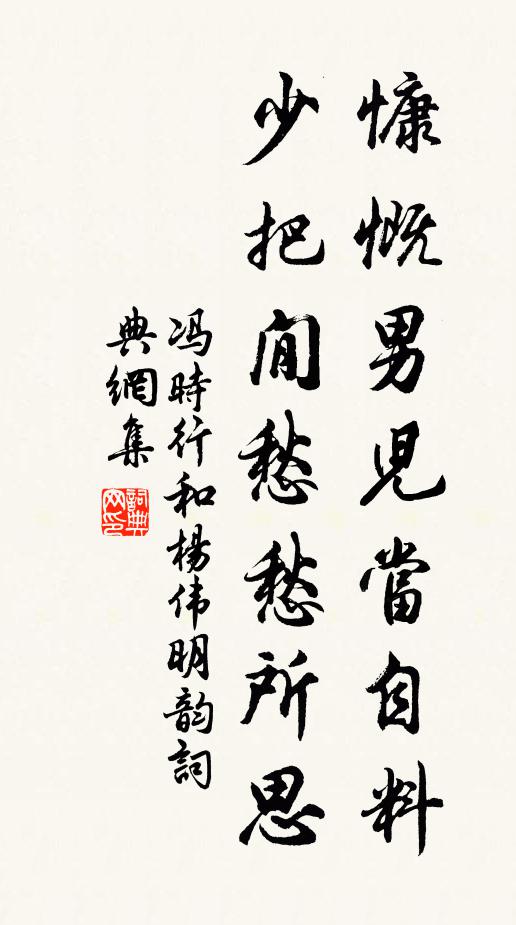 慷慨男兒當自料
少把閒愁愁所思
冯時行和楊伟明韵詞
典網集
詞典網印